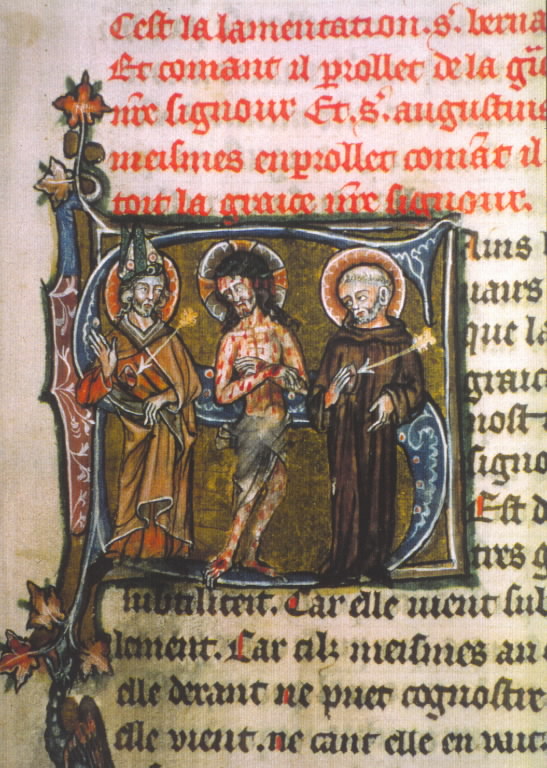 Cest la lamentation. s̄. berna
Et comant il prollet de la gr̄a
nr̄e signour Et. s̄. augustins
meismes en prollet comāt il
toit la graice nr̄e signour.
Auis
uairs
que la
graice
nost
signo
Est d
tres g
subtiliteit. Car elle uient sub
lement. Car cilz meismes au
elle deuant ne puet cognostre
elle vient. ne cant elle en vait